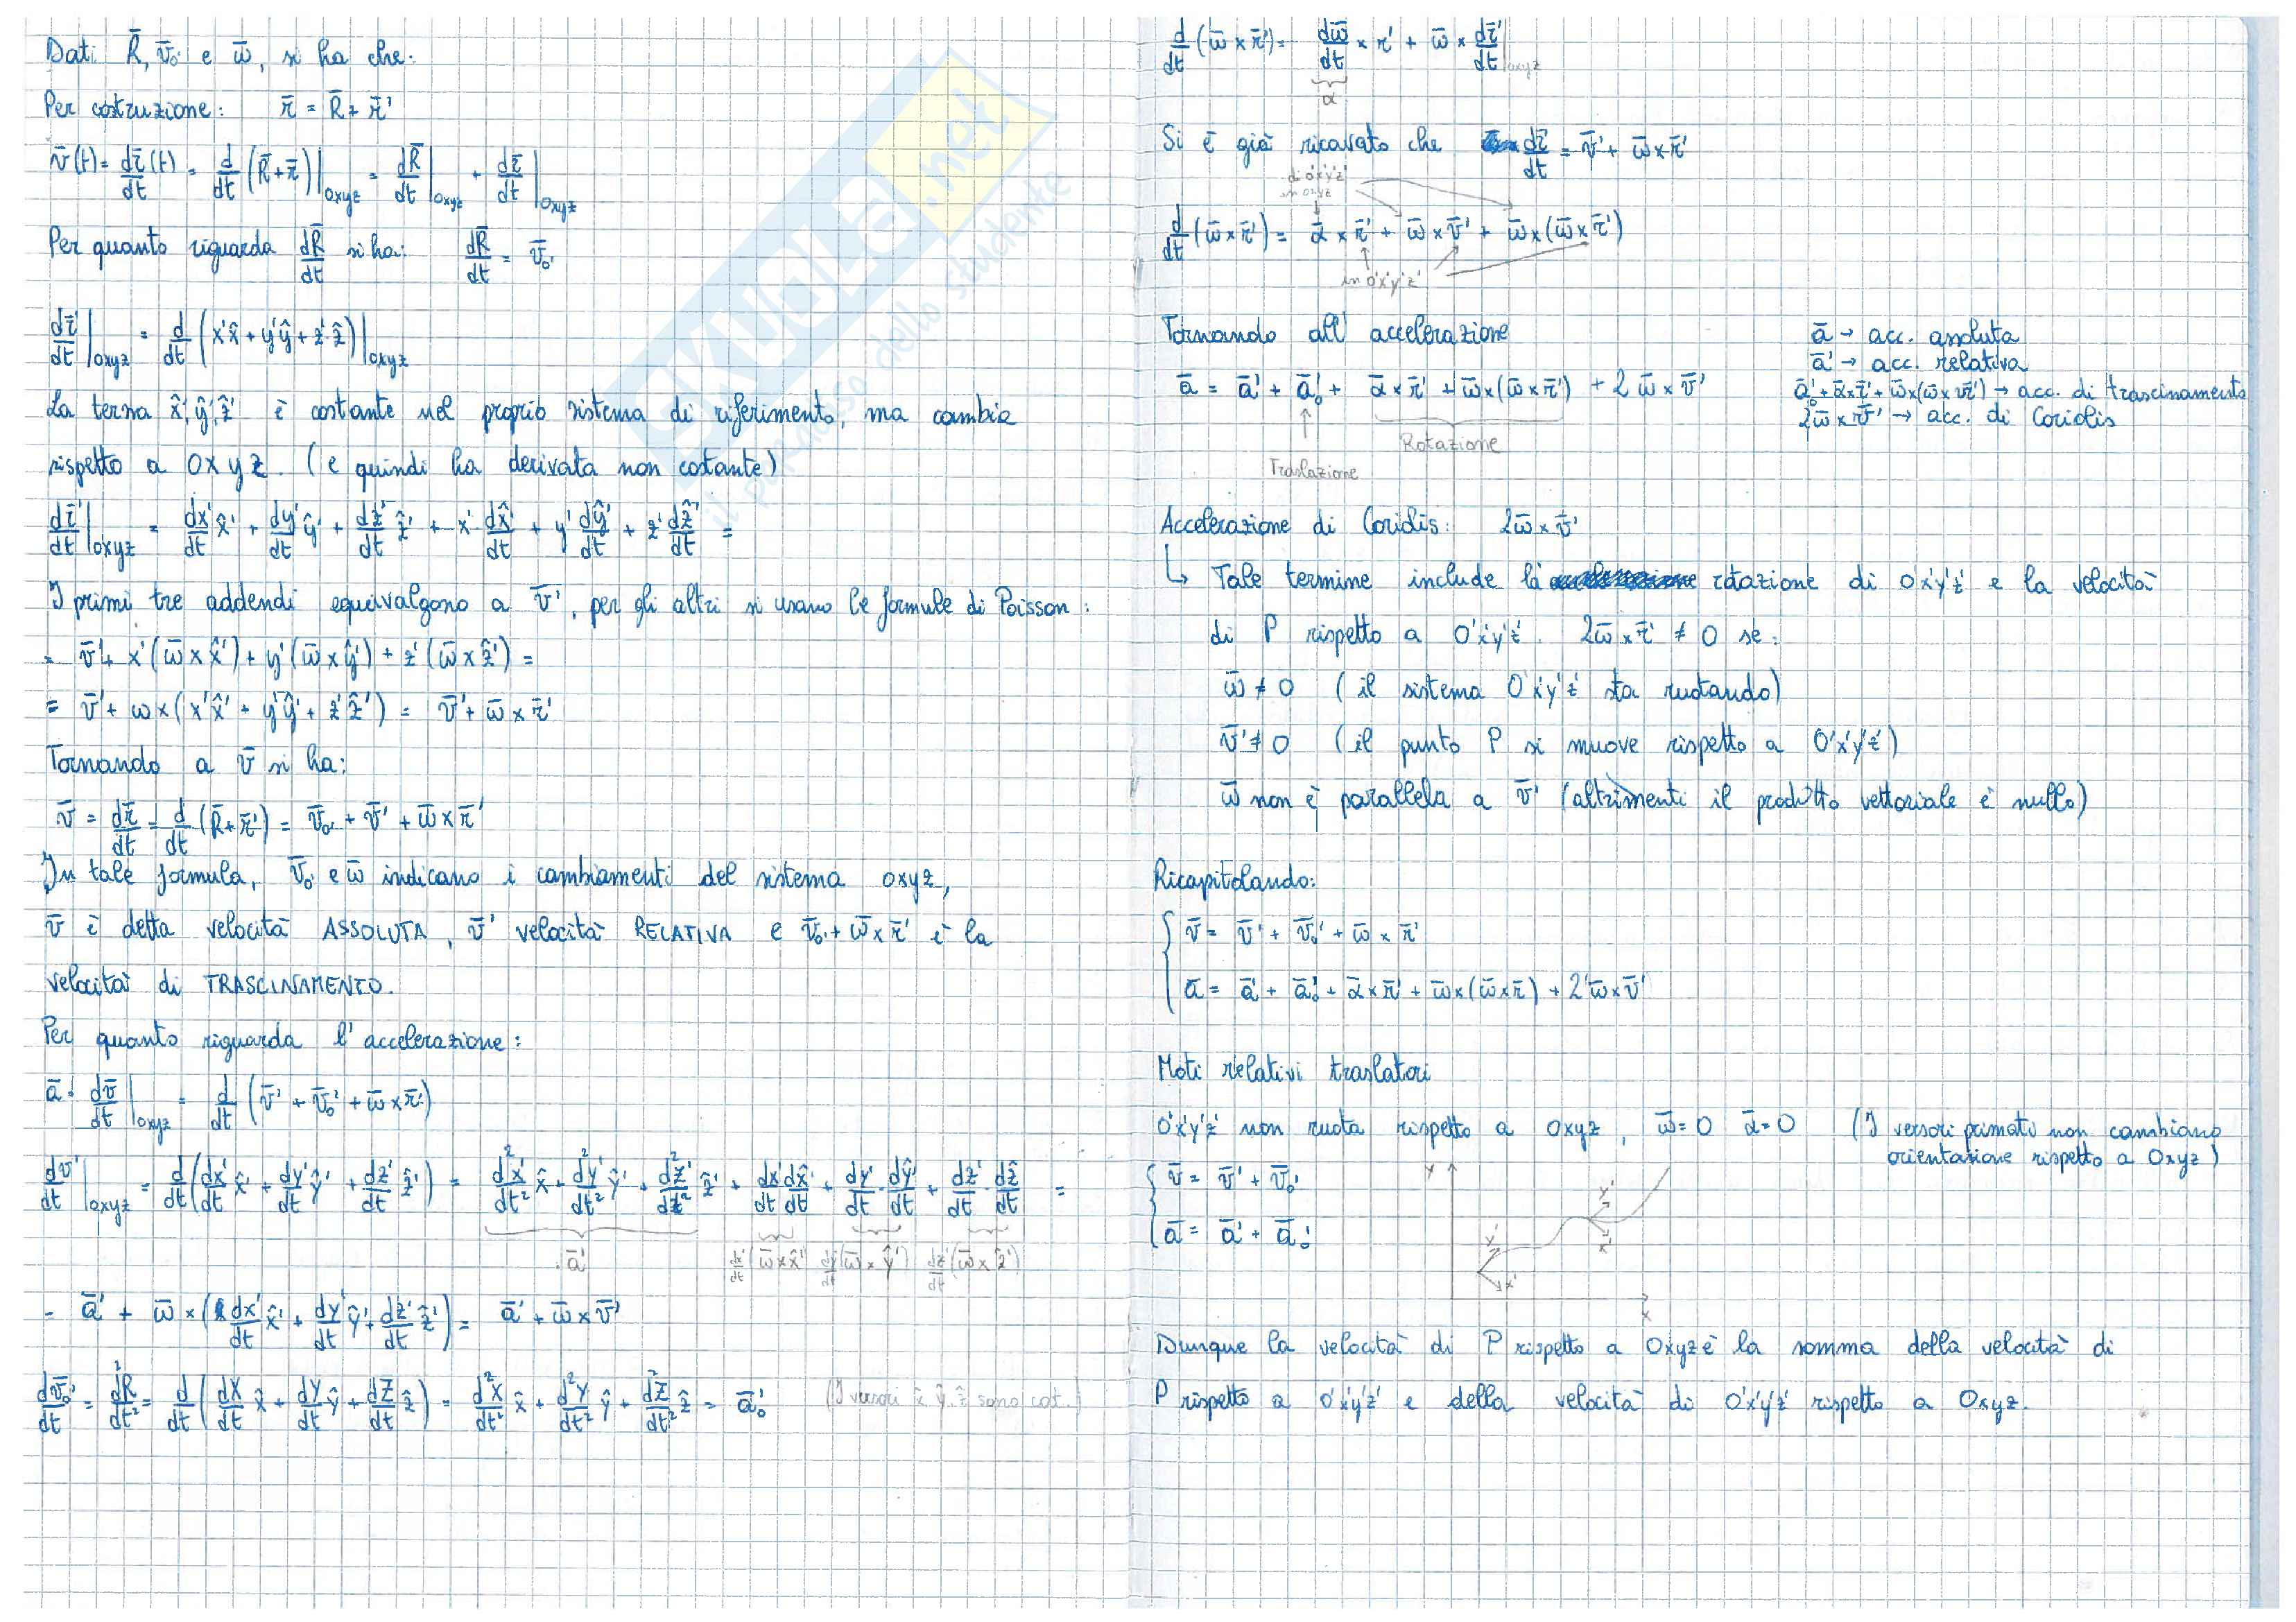 Dati R̄, v̄₀' e ω̄, si ha che:
Per costruzione: r̄ = R̄ + r̄'
v̄(t) = dr̄/dt (t) = d/dt (R̄ + r̄')|oxyz = dR̄/dt|oxyz + dr̄/dt|oxyz
Per quanto riguarda dR̄/dt si ha: dR̄/dt = v̄₀'
dr̄'/dt|oxyz = d/dt (x'x̂ + y'ŷ + z'ẑ)|oxyz
La terna x̂', ŷ', ẑ' è costante nel proprio sistema di riferimento, ma cambia
rispetto a oxyz. (e quindi ha derivata non costante)
dr̄'/dt|oxyz = dx'/dt x̂' + dy'/dt ŷ' + dz'/dt ẑ' + x' dx̂'/dt + y' dŷ'/dt + z' dẑ'/dt =
I primi tre addendi equivalgono a v̄', per gli altri si usano le formule di Poisson:
= v̄' + x'(ω̄ × x̂') + y'(ω̄ × ŷ') + z'(ω̄ × ẑ') =
= v̄' + ω × (x'x̂' + y'ŷ' + z'ẑ') = v̄' + ω̄ × r̄'
Tornando a v̄ si ha:
v̄ = dr̄/dt = d/dt (R̄ + r̄') = v̄₀' + v̄' + ω̄ × r̄'
In tale formula, v̄₀' e ω̄ indicano i cambiamenti del sistema oxyz,
v̄ è detta velocità ASSOLUTA, v̄' velocità RELATIVA e v̄₀' + ω̄ × r̄' è la
velocità di TRASCINAMENTO.
Per quanto riguarda l'accelerazione:
ā = dv̄/dt|oxyz = d/dt (v̄' + v̄₀' + ω̄ × r̄')
dv̄'/dt|oxyz = d/dt (dx'/dt x̂' + dy'/dt ŷ' + dz'/dt ẑ') = d²x'/dt² x̂ + d²y'/dt² ŷ' + d²z'/dt² ẑ' + dx'/dt dx̂'/dt + dy'/dt · dŷ'/dt + dz'/dt · dẑ/dt =
ā' dx'/dt (ω̄ × x̂') dy'/dt (ω̄ × ŷ') dz'/dt (ω̄ × ẑ')
= ā' + ω̄ × (dx'/dt x̂' + dy'/dt ŷ' + dz'/dt ẑ') = ā' + ω̄ × v̄'
dv̄₀'/dt = d²R/dt² = d/dt (dX/dt x̂ + dY/dt ŷ + dZ/dt ẑ) = d²X/dt² x̂ + d²Y/dt² ŷ + d²Z/dt² ẑ = ā₀' (I versori x̂ ŷ ẑ sono cost.)
d/dt (ω̄ × r̄') = dω̄/dt × r' + ω̄ × dr̄'/dt|oxyz
α
Si è già ricavato che dr̄/dt = v̄' + ω̄ × r̄'
di o'x'y'z'
in oxyz
d/dt (ω̄ × r̄') = ᾱ × r̄' + ω̄ × v̄' + ω̄ × (ω̄ × r̄')
in o'x'y'z'
Tornando all'accelerazione
ā = ā' + ā₀' + ᾱ × r̄' + ω̄ × (ω̄ × r̄') + 2 ω̄ × v̄'
Rotazione
Traslazione
ā → acc. assoluta
ā' → acc. relativa
ā₀' + ᾱ × r̄' + ω̄ × (ω̄ × r̄') → acc. di trascinamento
2ω̄ × v̄' → acc. di Coriolis
Accelerazione di Coriolis: 2ω̄ × v̄'
↳ Tale termine include la rotazione di o'x'y'z' e la velocità
di P rispetto a o'x'y'z'. 2ω̄ × r̄' ≠ 0 se:
ω̄ ≠ 0 (il sistema o'x'y'z' sta ruotando)
v̄' ≠ 0 (il punto P si muove rispetto a o'x'y'z')
ω̄ non è parallela a v̄' (altrimenti il prodotto vettoriale è nullo)
Ricapitolando:
v̄ = v̄' + v̄₀' + ω̄ × r̄'
ā = ā' + ā₀' + ᾱ × r̄' + ω̄ × (ω̄ × r̄) + 2 ω̄ × v̄'
Moti relativi traslatori
o'x'y'z' non ruota rispetto a oxyz, ω̄ = 0 ᾱ = 0 (I versori primati non cambiano
orientazione rispetto a oxyz)
v̄ = v̄' + v̄₀'
ā = ā' + ā₀'
y
y'
x'
y'
x'
x
Dunque la velocità di P rispetto a oxyz è la somma della velocità di
P rispetto a o'x'y'z' e della velocità di o'x'y'z' rispetto a oxyz.
SKUOLA.net
il paradiso dello studente